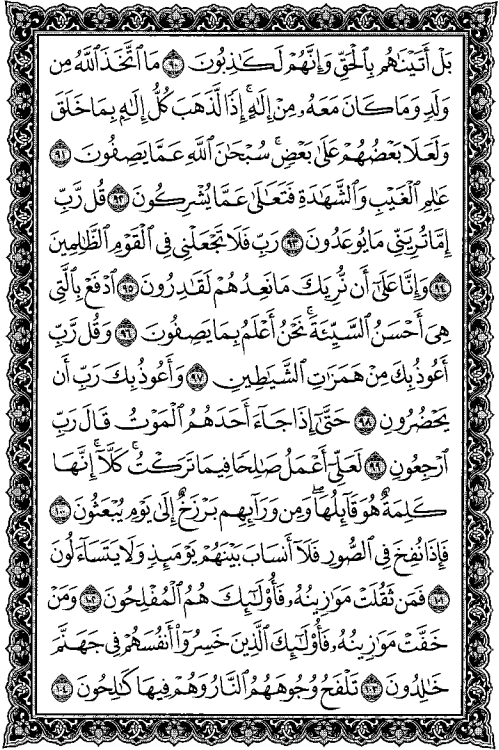 بَلْ أَتَيْنَٰهُم بِالْحَقِّ وَإِنَّهُمْ لَكَٰذِبُونَ ٩٠ مَا اتَّخَذَ اللَّهُ مِن
وَلَدٍ وَمَا كَانَ مَعَهُۥ مِنْ إِلَٰهٍ ۚ إِذًا لَّذَهَبَ كُلُّ إِلَٰهٍۭ بِمَا خَلَقَ
وَلَعَلَا بَعْضُهُمْ عَلَىٰ بَعْضٍ ۚ سُبْحَٰنَ اللَّهِ عَمَّا يَصِفُونَ ٩١
عَٰلِمِ الْغَيْبِ وَالشَّهَٰدَةِ فَتَعَٰلَىٰ عَمَّا يُشْرِكُونَ ٩٢ قُل رَّبِّ
إِمَّا تُرِيَنِّي مَا يُوعَدُونَ ٩٣ رَبِّ فَلَا تَجْعَلْنِي فِي الْقَوْمِ الظَّٰلِمِينَ
٩٤ وَإِنَّا عَلَىٰٓ أَن نُّرِيَكَ مَا نَعِدُهُمْ لَقَٰدِرُونَ ٩٥ ادْفَعْ بِالَّتِي
هِيَ أَحْسَنُ السَّيِّئَةَ ۚ نَحْنُ أَعْلَمُ بِمَا يَصِفُونَ ٩٦ وَقُل رَّبِّ
أَعُوذُ بِكَ مِنْ هَمَزَٰتِ الشَّيَٰطِينِ ٩٧ وَأَعُوذُ بِكَ رَبِّ أَن
يَحْضُرُونِ ٩٨ حَتَّىٰٓ إِذَا جَآءَ أَحَدَهُمُ الْمَوْتُ قَالَ رَبِّ
ارْجِعُونِ ٩٩ لَعَلِّيٓ أَعْمَلُ صَٰلِحًا فِيمَا تَرَكْتُ ۚ كَلَّآ ۚ إِنَّهَا
كَلِمَةٌ هُوَ قَآئِلُهَا ۖ وَمِن وَرَآئِهِم بَرْزَخٌ إِلَىٰ يَوْمِ يُبْعَثُونَ ١٠٠
فَإِذَا نُفِخَ فِي الصُّورِ فَلَآ أَنسَابَ بَيْنَهُمْ يَوْمَئِذٍ وَلَا يَتَسَآءَلُونَ
١٠١ فَمَن ثَقُلَتْ مَوَٰزِينُهُۥ فَأُو۟لَٰٓئِكَ هُمُ الْمُفْلِحُونَ ١٠٢ وَمَنْ
خَفَّتْ مَوَٰزِينُهُۥ فَأُو۟لَٰٓئِكَ الَّذِينَ خَسِرُوٓا۟ أَنفُسَهُمْ فِي جَهَنَّمَ
خَٰلِدُونَ ١٠٣ تَلْفَحُ وُجُوهَهُمُ النَّارُ وَهُمْ فِيهَا كَٰلِحُونَ ١٠٤